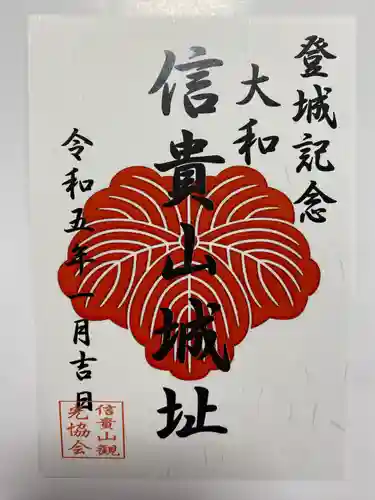 登城記念
大和
信貴山城址
令和五年一月吉日
信貴山観
光協会